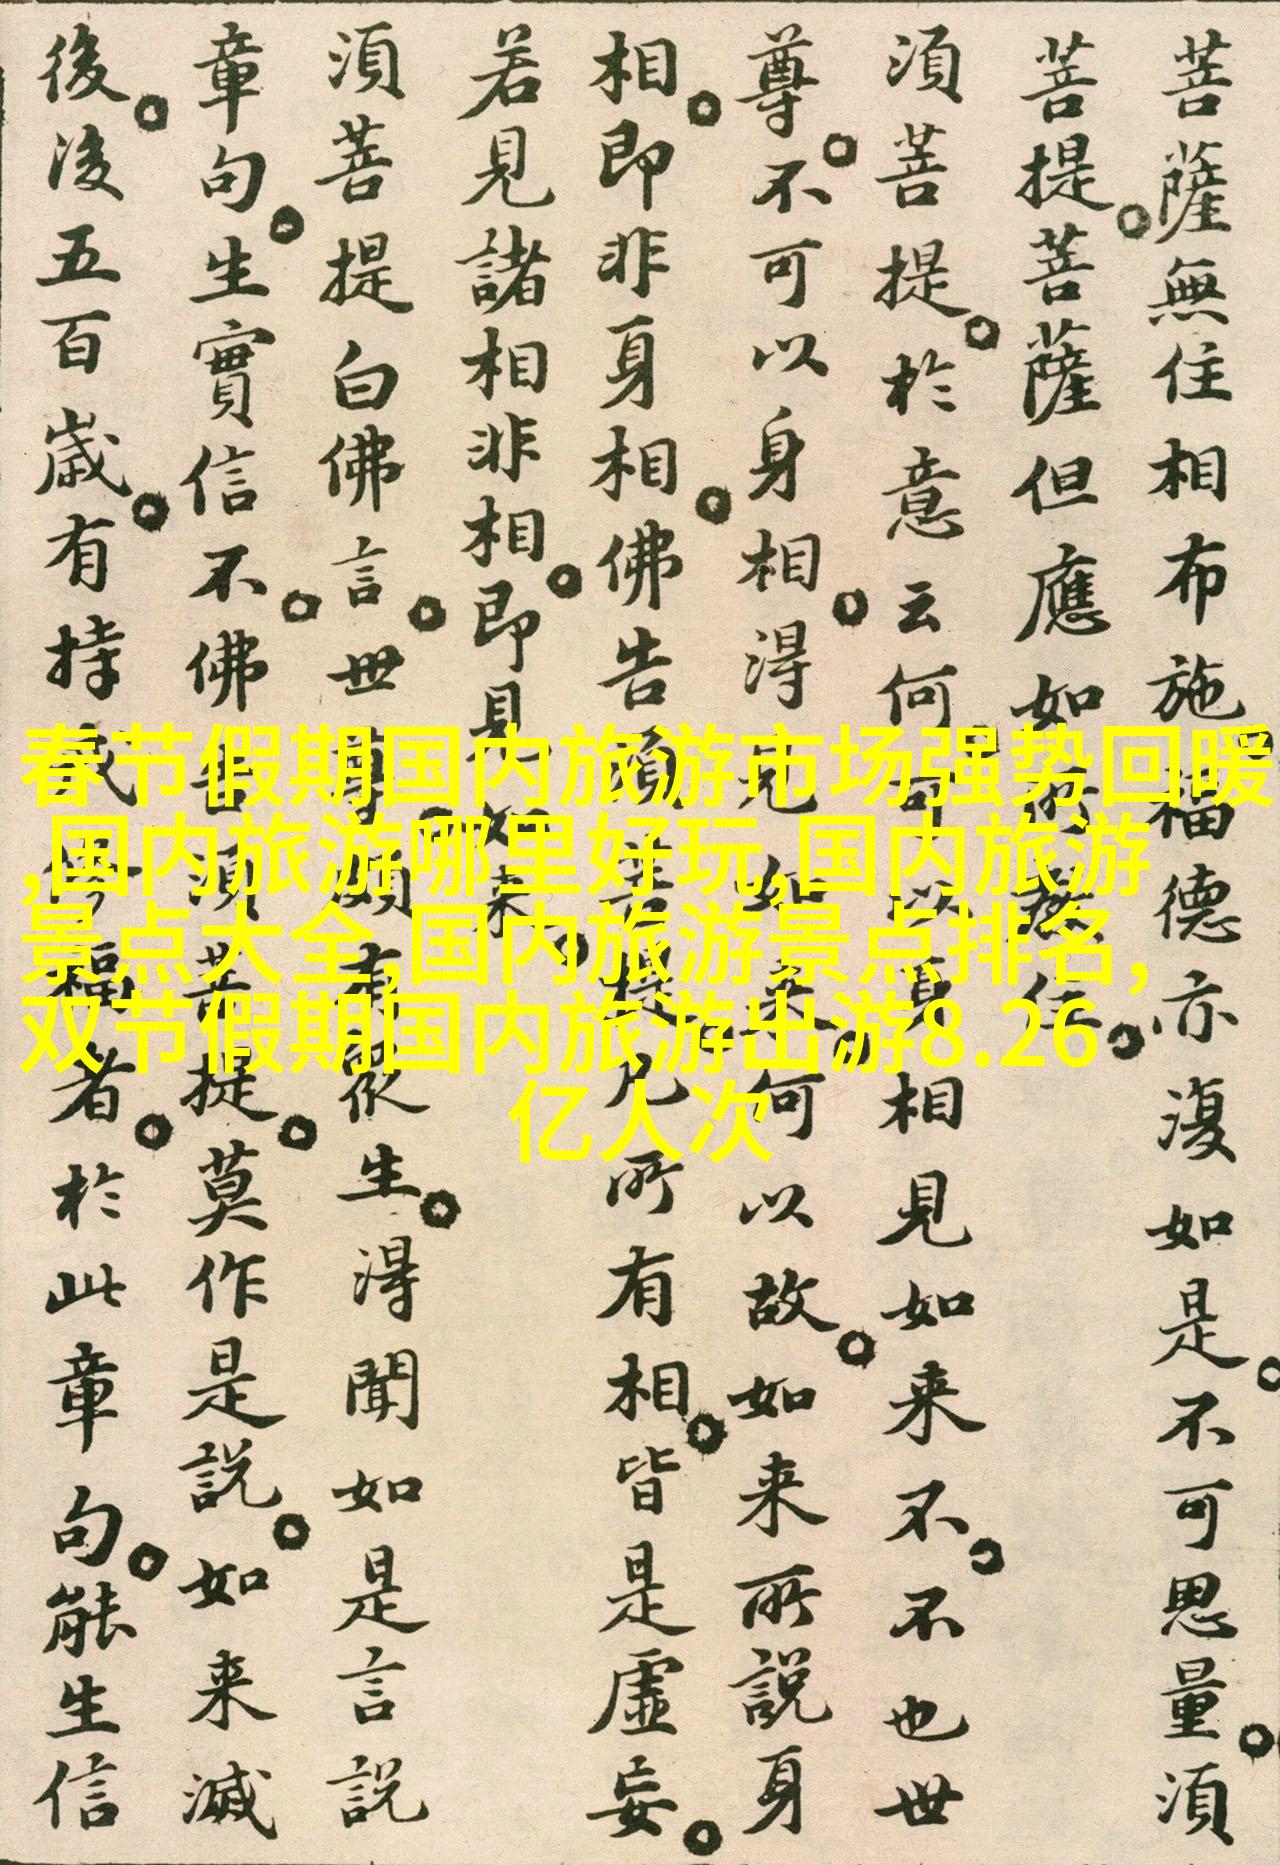 菩薩無住相布施。福德亦復如是。不可思量。須
菩提。菩薩但應如所教住。
須菩提。於意云何。可以身相見如来不。不也世
尊。不可以身相。得見如来。何以故。如来所説身
相。即非身相。佛告須菩提。凡所有相。皆是虛妄。
若見諸相非相。即見如来。
須菩提白佛言。世尊。頗有眾生。得聞如是言説
章句。生實信不。佛告須菩提。莫作是説。如来滅
後。後五百歲。有持戒修福者。於此章句。能生信
春节假期国内旅游市场强势回暖
,国内旅游哪里好玩,国内旅游
景点大全,国内旅游景点排名，
双节假期国内旅游出游8.26
亿人次